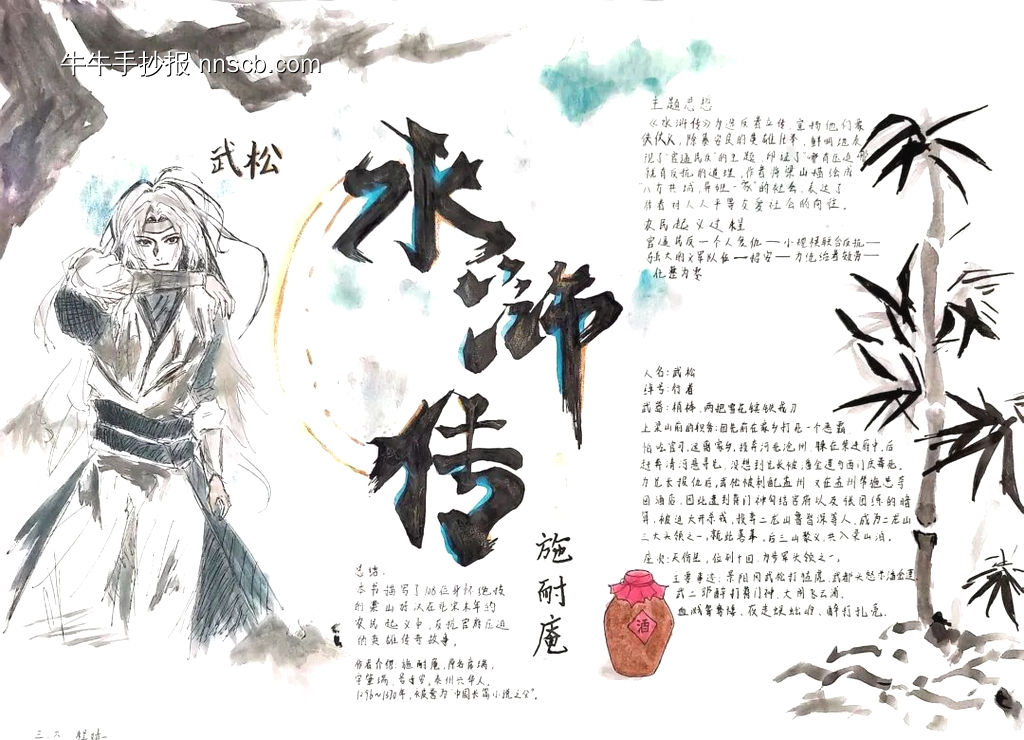 牛牛手抄报 nnscb.com
武松
水浒传
施耐庵
酒
主题思想
《水浒传》为造反者立传，宣扬他们豪
侠仗义，除暴安良的英雄壮举，鲜明地表
现了"官逼民反"的主题，印证了"哪有压迫哪
就有反抗的道理，作者将梁山描绘成
"八方共域，异姓一家"的社会，表达了
作者对人人平等友爱社会的向往。
农民起义过程
官逼民反一个人复仇——小规模联合反抗——
强大的义军队伍——招安——为统治者效劳——
人名：武松
绰号：行者
武器：梢棒，两把雪花镔铁戒刀
上梁山前的职务：因先前在家乡打死一个恶霸
怕吃官司，逃离家乡，投奔河北沧州，躲在柴进府中，后
赶奔清河县寻兄，没想到兄长被潘金莲与西门庆毒死。
为兄长报仇后，武松被刺配孟州，又在孟州帮施恩夺
回酒店，因此遭到蒋门神勾结官府以及张团练的暗
算，被迫大开杀戒，投奔二龙山鲁智深等人，成为二龙山
三大头领之一，后三山聚义，共入梁山泊。
座次：天伤星，位列十四，为步军头领之一。
主要事迹：景阳冈武松打猛虎，武都头怒杀潘金莲
武二郎醉打蒋门神，大闹飞云浦，
血溅鸳鸯楼，夜走蜈蚣岭，醉打孔亮。
总结：
本书描写了108位身怀绝技
的梁山好汉在北宋末年的
农民起义中，反抗官府压迫
的英雄传奇故事。
作者介绍：施耐庵，原名彦端，
字肇瑞，号子安，泰州兴华人，
1296～1370年，被誉为"中国长篇小说之父"。